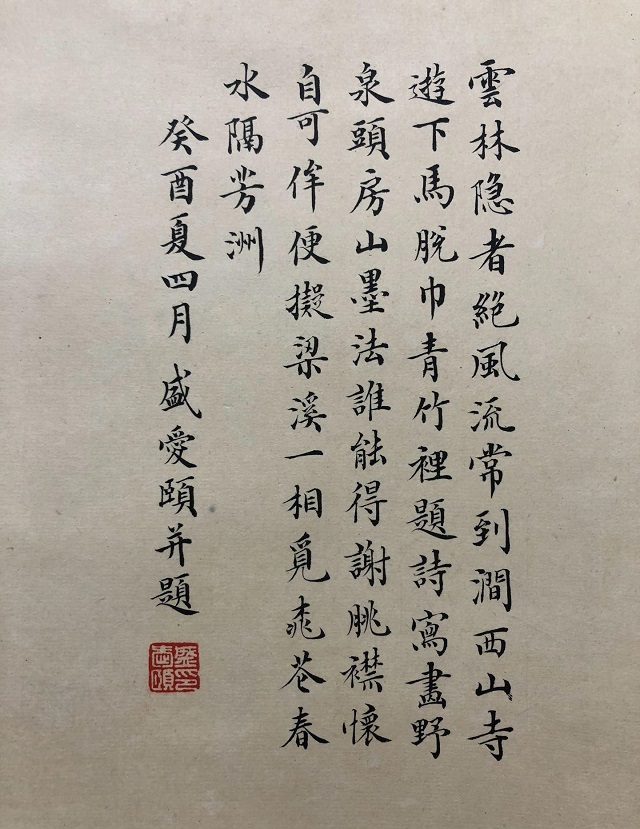 雲林隐者絕風流常到澗西山寺
遊下馬脫巾青竹裡題詩寫畫野
泉頭房山墨法誰能得謝朓襟懷
自可侔便擬梁溪一相覓桃花春
水隔芳洲
癸酉夏四月 盛愛頤并題
盛愛頤印